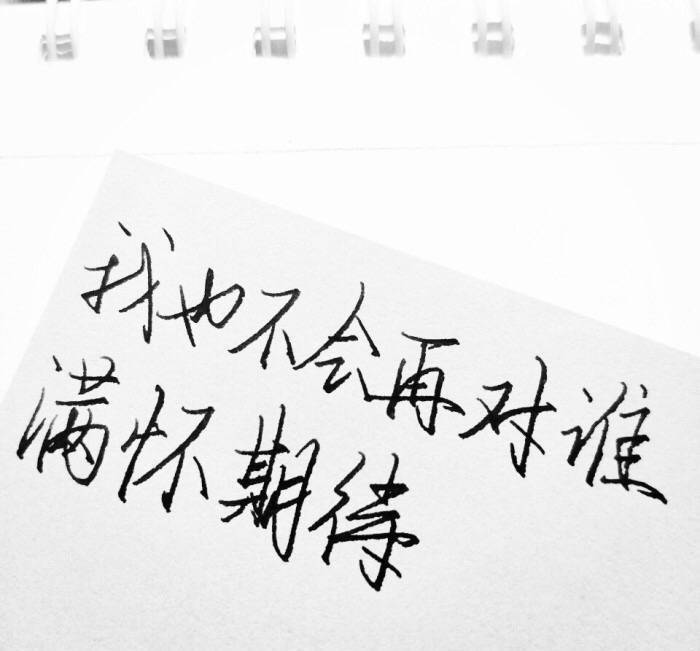 我也不会再对谁
满怀期待